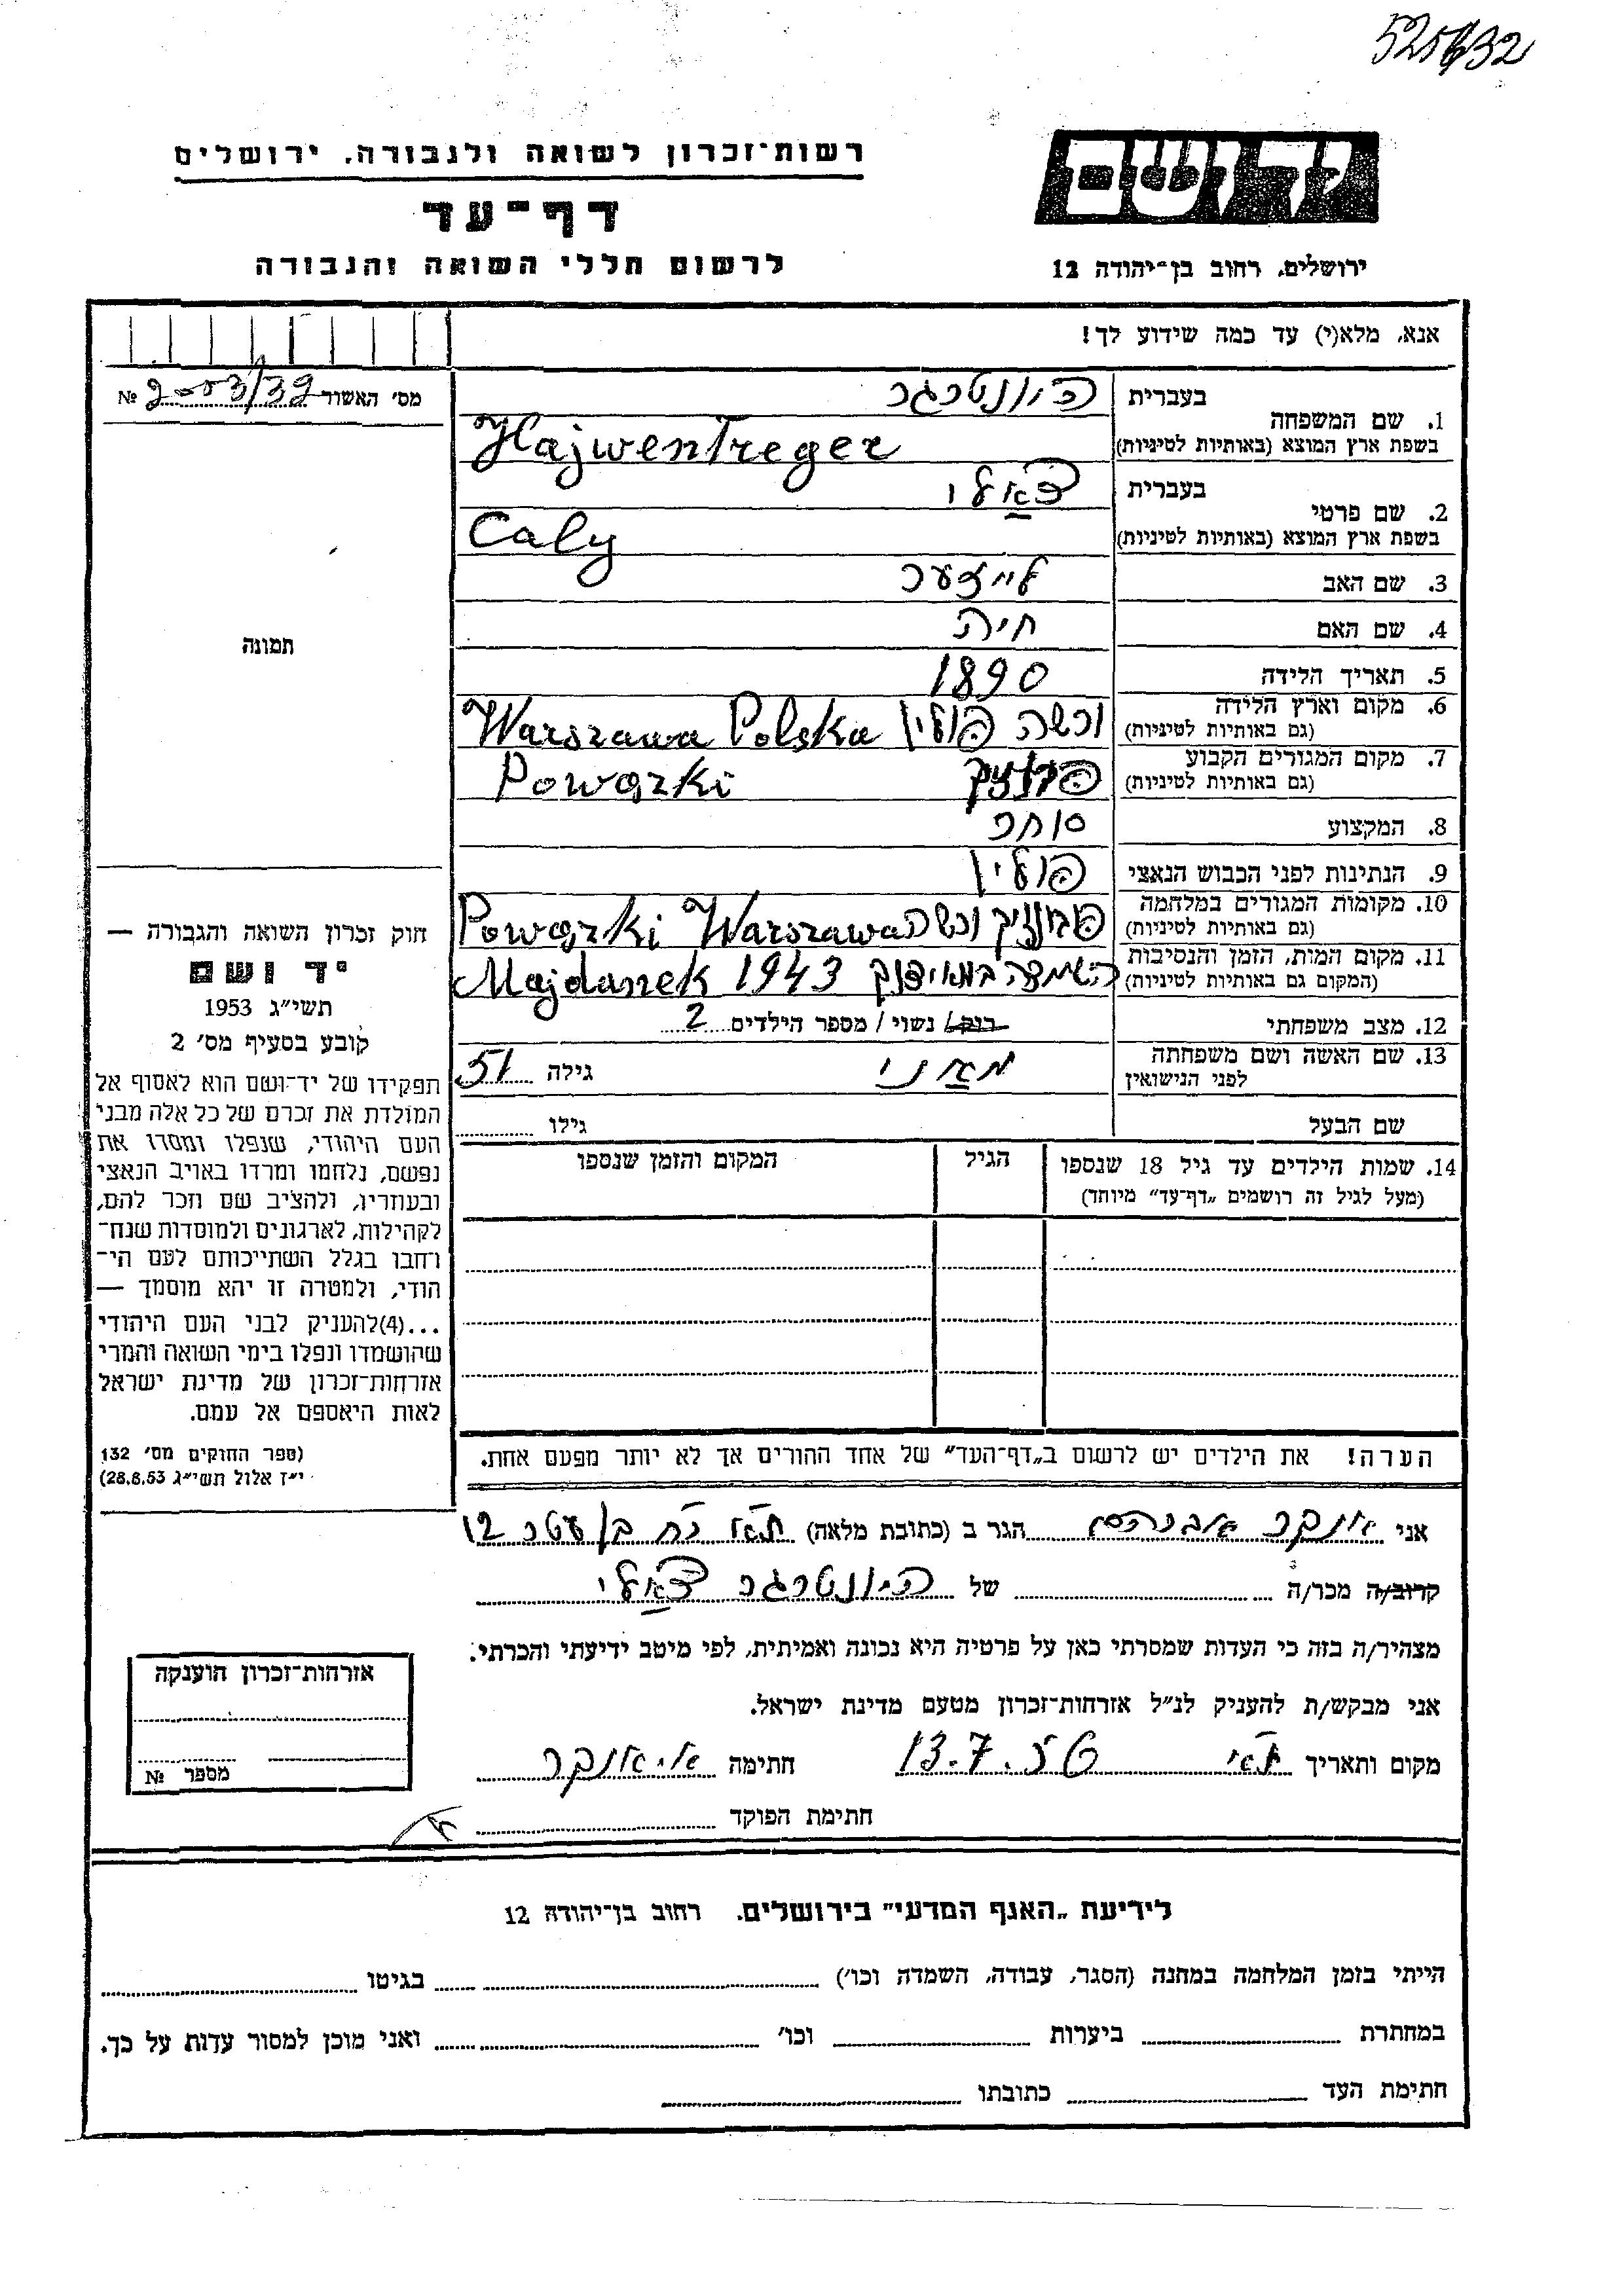 525/632
רשות־זכרון לשואה ולגבורה, ירושלים
יד ושם
דף־עד
לרשום חללי השואה והגבורה
ירושלים, רחוב בן־יהודה 12
אנא, מלא(י) עד כמה שידוע לך!
מס׳ האשור № 2003/39
1. שם המשפחה
בעברית היונטרגר
בשפת ארץ המוצא (באותיות לטיניות) Hajwentreger
2. שם פרטי
בעברית צאלי
בשפת ארץ המוצא (באותיות לטיניות) Caly
3. שם האב לייזער
4. שם האם חיה
תמונה
5. תאריך הלידה 1890
6. מקום וארץ הלידה (גם באותיות לטיניות) ורשה פולין Warszawa Polska
7. מקום המגורים הקבוע (גם באותיות לטיניות) Powązki
8. המקצוע סוחר
9. הנתינות לפני הכבוש הנאצי פולין
10. מקומות המגורים במלחמה (גם באותיות לטיניות) ורשה Powązki Warszawa
11. מקום המות, הזמן והנסיבות (המקום גם באותיות לטיניות) Majdanek 1943
12. מצב משפחתי רוק/ נשוי / מספר הילדים 2
13. שם האשה ושם משפחתה לפני הנישואין מאני גילה 51
שם הבעל גילו
14. שמות הילדים עד גיל 18 שנספו הגיל המקום והזמן שנספו
(מעל לגיל זה רושמים „דף־עד” מיוחד)
הערה! את הילדים יש לרשום ב„דף־העד” של אחד ההורים אך לא יותר מפעם אחת.
חוק זכרון השואה והגבורה —
יד ושם
תשי״ג 1953
קובע בסעיף מס׳ 2
תפקידו של יד־ושם הוא לאסוף אל
המולדת את זכרם של כל אלה מבני
העם היהודי, שנפלו ומסרו את
נפשם, נלחמו ומרדו באויב הנאצי
ובעוזריו, ולהציב שם וזכר להם,
לקהילות, לארגונים ולמוסדות שנח־
רחבו בגלל השתייכותם לעם הי־
הודי, ולמטרה זו יהא מוסמך —
...(4)להעניק לבני העם היהודי
שהושמדו ונפלו בימי השואה והמרי
אזרחות־זכרון של מדינת ישראל
לאות היאספם אל עמם.
(ספר החוקים מס׳ 132
י״ז אלול תשי״ג 28.8.53)
אני אונקר אברהם הגר ב (כתובת מלאה) 12
קרוב/ה מכר/ה של היונטרגר צאלי
מצהיר/ה בזה כי העדות שמסרתי כאן על פרטיה היא נכונה ואמיתית, לפי מיטב ידיעתי והכרתי.
אני מבקש/ת להעניק לנ״ל אזרחות־זכרון מטעם מדינת ישראל.
מקום ותאריך 13.7.56 חתימה אונקר
חתימת הפוקד
אזרחות־זכרון הוענקה
מספר №
לידיעת „האגף המדעי” בירושלים, רחוב בן־יהודה 12
הייתי בזמן המלחמה במחנה (הסגר, עבודה, השמדה וכו׳) בגיטו
במחתרת ביערות וכו׳ ואני מוכן למסור עדות על כך.
חתימת העד כתובתו